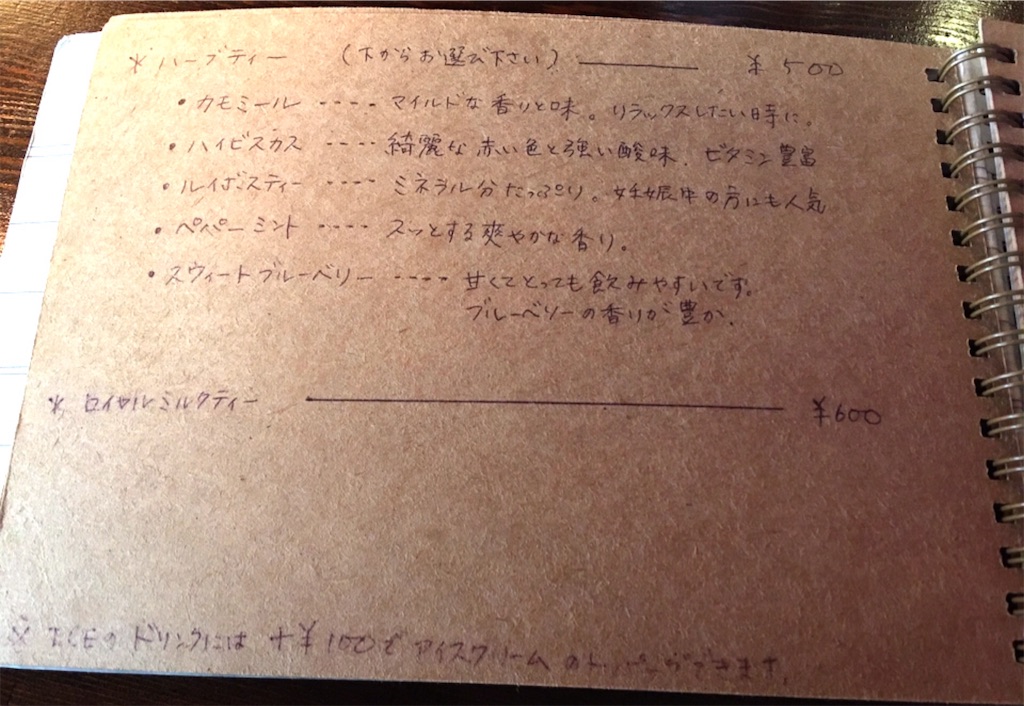 * ハーブティー (下からお選び下さい) ―――― ¥500
• カモミール ---- マイルドな香りと味。リラックスしたい時に。
• ハイビスカス ---- 綺麗な赤い色と強い酸味、ビタミン豊富
• ルイボスティー ---- ミネラル分たっぷり。妊娠中の方にも人気
• ペパーミント ---- スッとする爽やかな香り。
• スウィートブルーベリー ---- 甘くてとっても飲みやすいです。
ブルーベリーの香りが豊か.
* ロイヤルミルクティー ―――― ¥600
※ ICEのドリンクには +¥100で アイスクリームのトッピングできます.